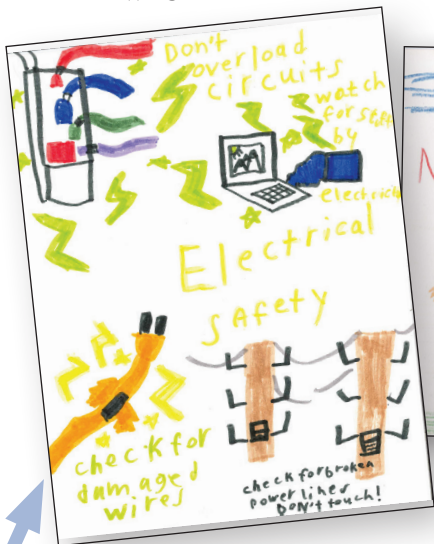 Don't
overload
circuits
watch
for stuff
by
electricity
Electrical
SAfety
check for
damaged
wires
check for broken
power lines
DON't touch!